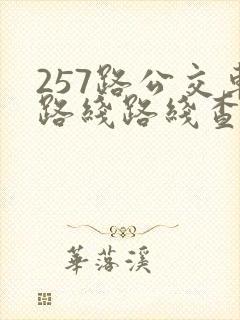 257路公交車
路綫路綫查
華落溪